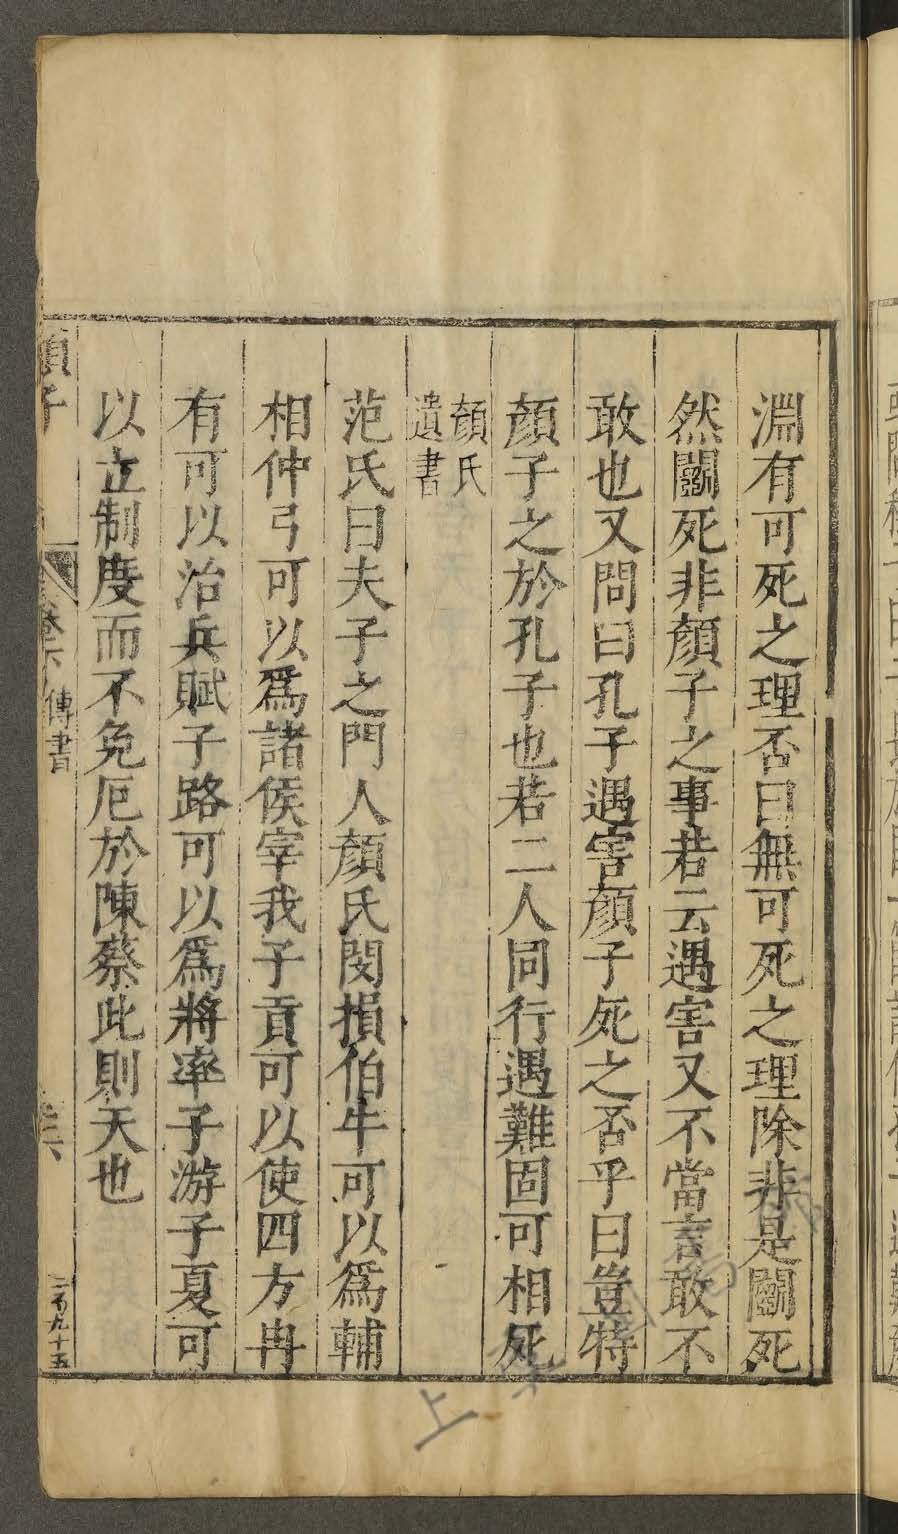 淵有可死之理否曰無可死之理除非是鬭死
然鬭死非顏子之事若云遇害又不當言敢不
敢也又問曰孔子遇害顏子死之否乎曰豈特
顏子之於孔子也若二人同行遇難固可相死
顏氏
遺書
范氏曰夫子之門人顏氏閔損伯牛可以爲輔
相仲弓可以爲諸侯宰我子貢可以使四方冉
有可以治兵賦子路可以爲將率子游子夏可
以立制度而不免厄於陳蔡此則天也
顏子
卷下
傳書
二百九十五
上